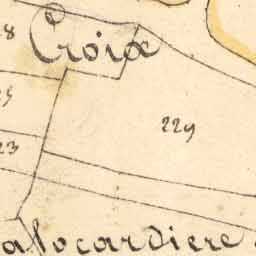 8
Croix
229
23
alocardiere